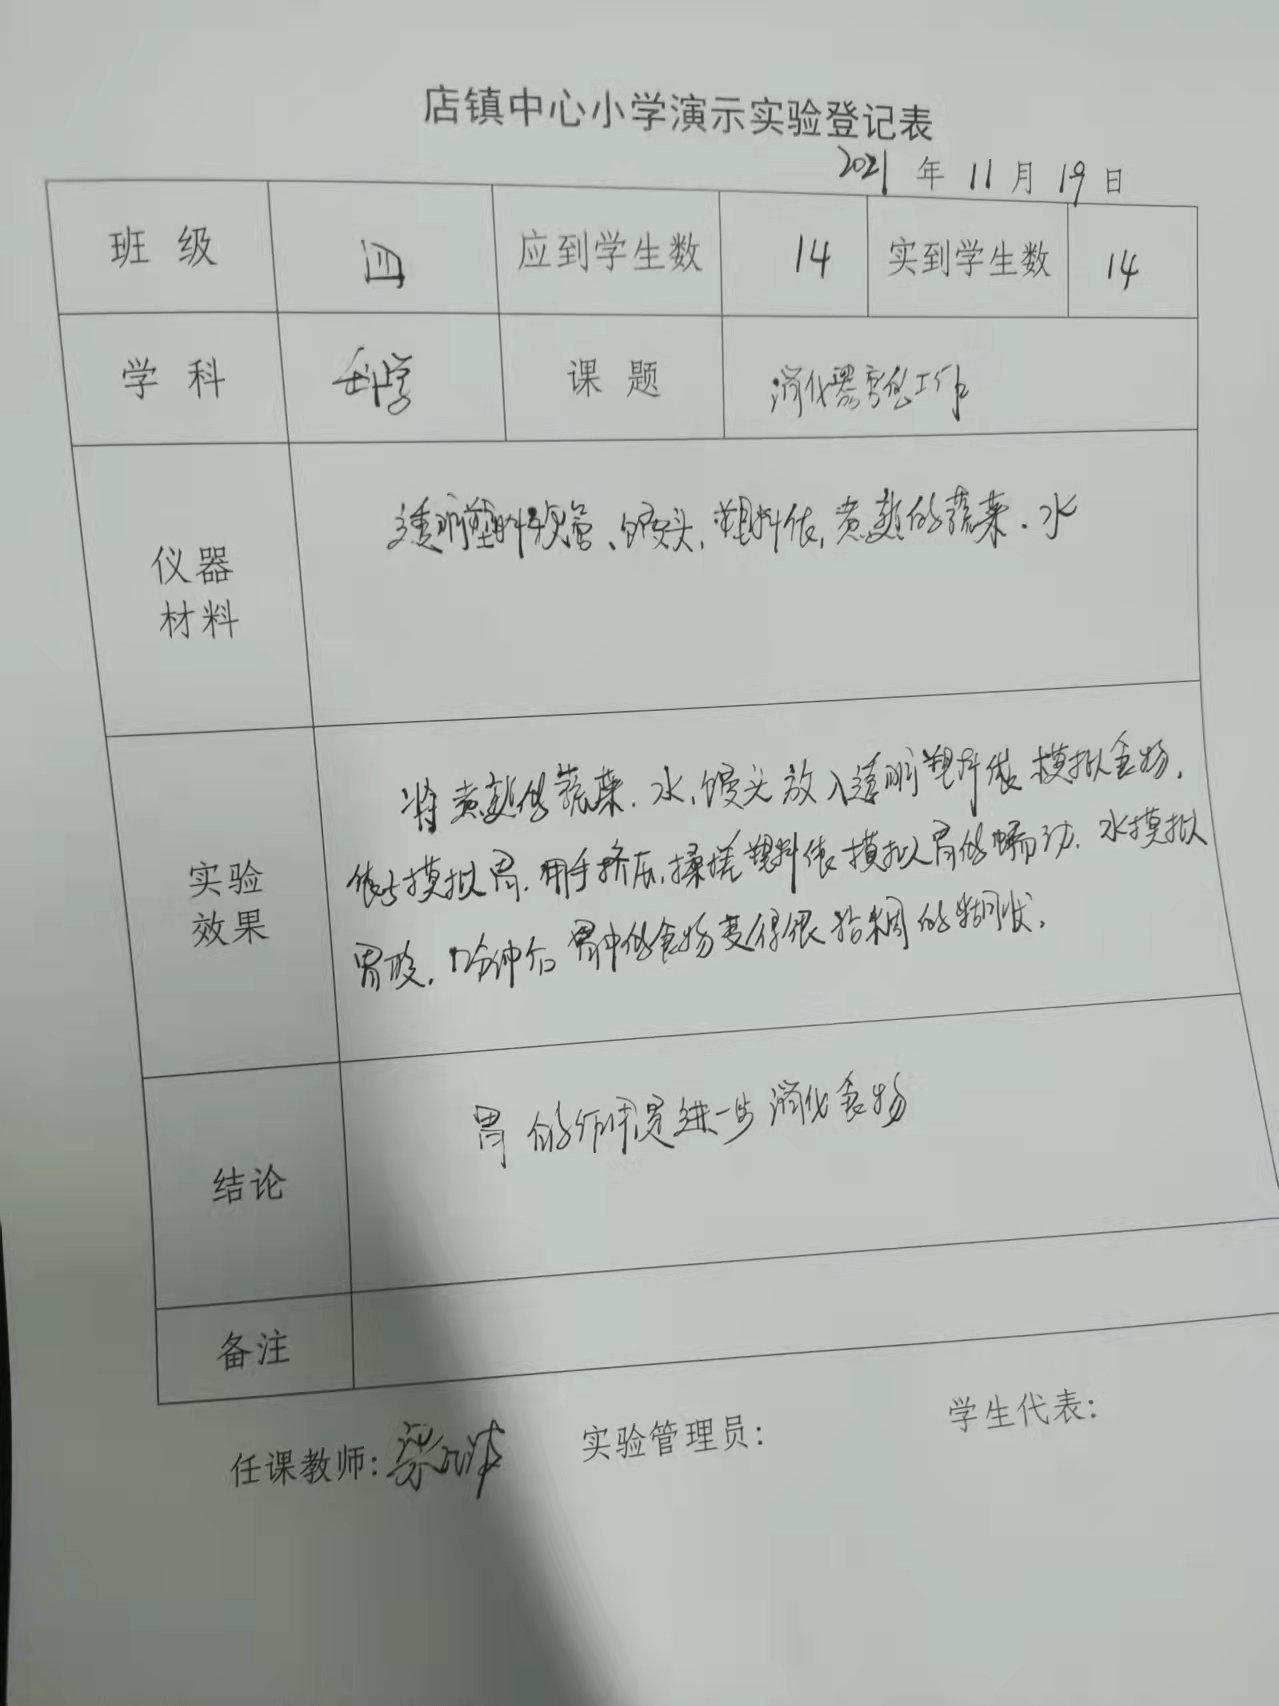 店镇中心小学演示实验登记表
2021 年 11 月 19 日
班 级 四 应到学生数 14 实到学生数 14
学 科 科学 课 题 消化器官的工作
仪器材料 透明塑料软管、馒头,塑料袋,煮熟的蔬菜.水
实验效果 将煮熟的蔬菜.水,馒头放入透明塑料袋模拟食物,
袋子模拟胃.用手挤压,揉搓塑料袋模拟胃的蠕动.水模拟
胃酸,几分钟后胃中的食物变得很粘稠的糊状.
结论 胃的作用是进一步消化食物
备注
任课教师: 实验管理员: 学生代表: